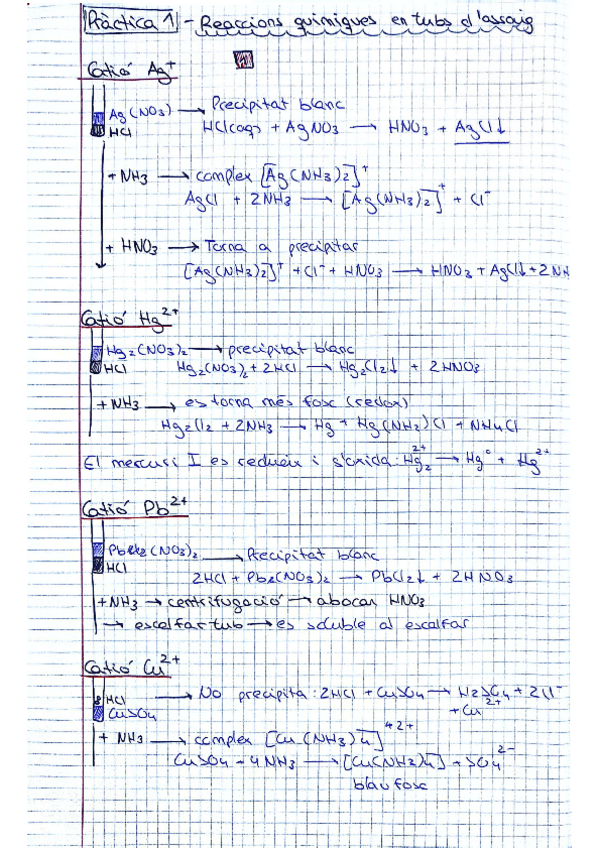 Pràctica 1 - Reaccions químiques en tubs d'assaig
Catió Ag+
Ag(NO3) → Precipitat blanc
HCl HCl(aq) + AgNO3 → HNO3 + AgCl↓
+ NH3 → complex [Ag(NH3)2]+
AgCl + 2NH3 → [Ag(NH3)2]+ + Cl-
+ HNO3 → Torna a precipitar
[Ag(NH3)2]+ + Cl- + HNO3 → HNO3 + AgCl↓ + 2NH
Catió Hg2+
Hg2(NO3)2 → precipitat blanc
HCl Hg2(NO3)2 + 2HCl → Hg2Cl2↓ + 2HNO3
+ NH3 → es torna més fosc (redox)
Hg2Cl2 + 2NH3 → Hg + Hg(NH2)Cl + NH4Cl
El mercuri I es redueix i s'oxida: Hg2 2+ → Hg° + Hg2+
Catió Pb2+
(NO3)2 → Precipitat blanc
HCl 2HCl + Pb2(NO3)2 → PbCl2↓ + 2HNO3
+ NH3 → centrifugació → abocar HNO3
→ escalfar tub → es soluble al escalfar
Catió Cu2+
HCl → No precipita: 2HCl + CuSO4 → H2SO4 + 2Cl-
CuSO4 + Cu2+
+ NH3 → complex [Cu(NH3)4] 2+
CuSO4 + 4NH3 → [Cu(NH3)4] + SO4 2-
blau fosc